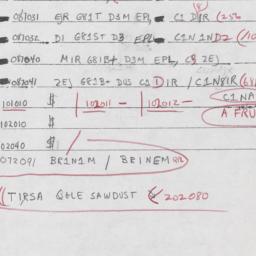 087031 EJR G81T D3M EPL C1 DIR (256
087032 DI G81ST D3 EPL C1N1ND2 (10
087040 MIR G81B+ D3M EPL, C 2EJ
087041 2EJ G81B+ DUS C1 DIR / C1N8IR (68
101010 $ 102011 - 102012 - C1NA
102010 $ A FRU
102040 $
072091 BR1N1M / BR1NEM
TIRSA Q+LE SAWDUST 202080